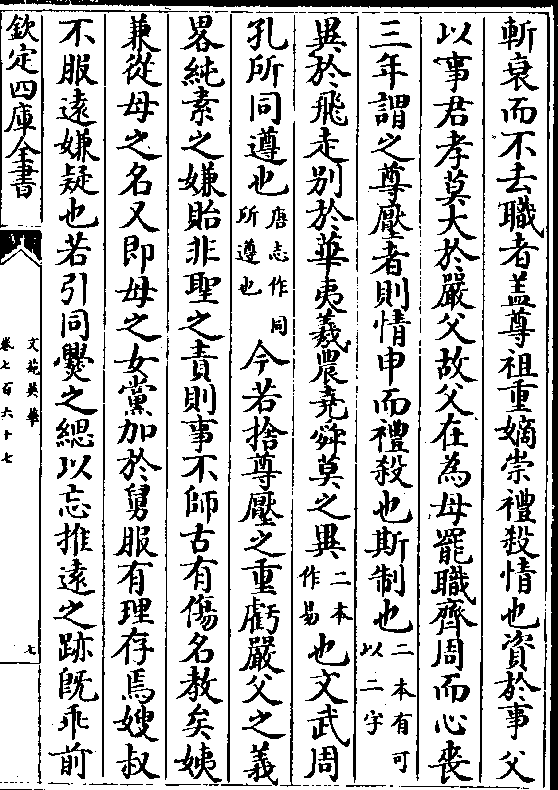 斬衰而不去職者盖尊祖重嫡崇禮殺情也資於事父
以事君孝莫大於嚴父故父在為母罷職齊周而心喪
三年謂之尊壓者則情申而禮殺也斯制也二本有可以二字
異於飛走别於華夷羲農堯舜莫之異二本作易也文武周
孔所同遵也唐志作同所遵也今若捨尊壓之重虧嚴父之義
畧純素之嫌貽非聖之責則事不師古有傷名教矣姨
兼從母之名又即母之女黨加於舅服有理存焉嫂叔
不服逺嫌疑也若引同爨之緦以忘推逺之跡既乖前
欽定四庫全書
文苑英華
卷七百六十七
七